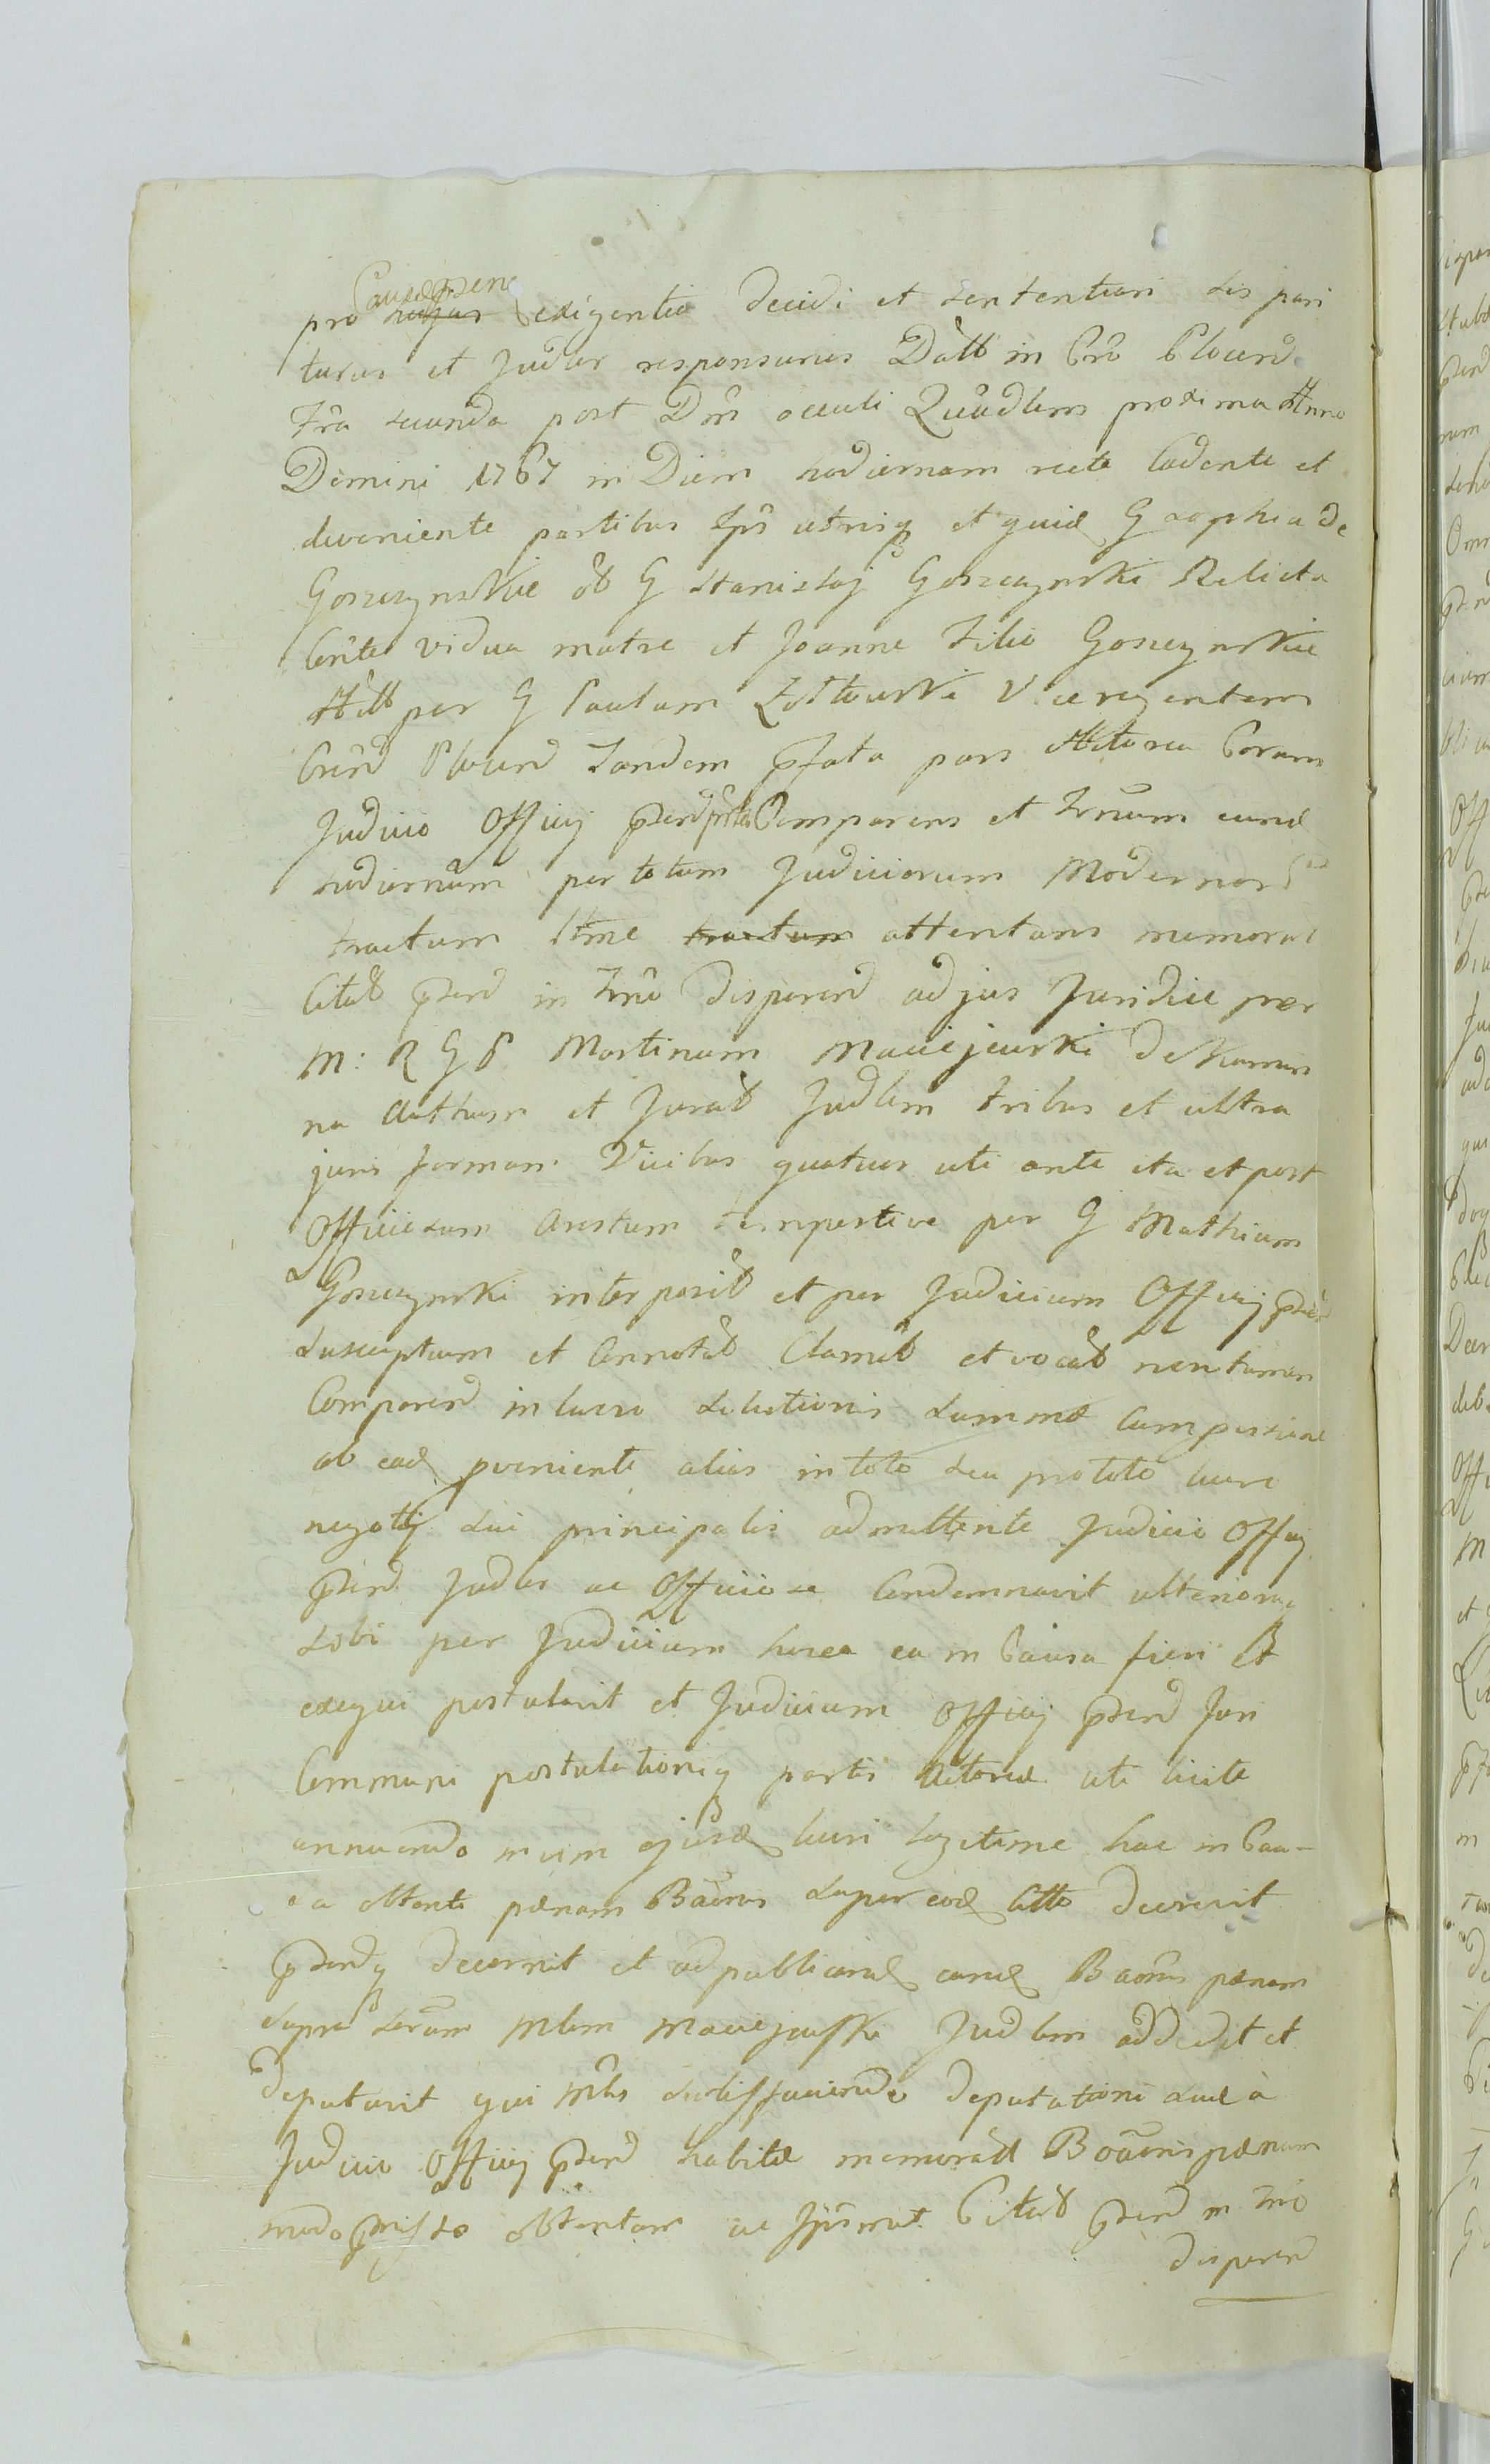 Causæ præsen
pro hujus exigentia decidi et sententiari sis pari
turus et Judlr responsurus Datt in Crô Plocen
Fra secunda post Dm oculi Quâdlem proxima Anno
Domini 1767 in Diem hodiernam recte Cadente et
deveniente partibus Ipis utrisq et quid G Zophia de
Goszczynskie ôd G Stanislaj Goszczynski Relicta
Cônte vidua matre et Joanne Filio Goszczynskie
Att per G Paulum Zoltowski Viceregentem
Crên Plocen Tandem pfata pars Actorea Coram
Judicio Officij pserd Comparens et Trnum eund
hodiernum per totum Judiciorum Modernor
tractum ltme tractum attentans memorat
Citat pserd in Trno disparen ad jus Juridice per
M: R G P Martinum Maciejewski de Kamin
na Authen et Jurat Judlem tribus et ultra
juris formam Vicibus quatuor uti ante ita et post
Officiosum Arestum tempestive per G Mathiam
Goszczynski interposit et per Judicium Officij pserd
susceptum et Annotat Clamat et vocat non tamen
Comparen in lucro solutionis summæ Cum
ab ead pveniente alias in toto seu pro toto lucro
negotij sui principalis admittente Judicio Offcij
pserd Judlr ac Officiose Condemnavit ulterioraq
sibi per Judicium hocce ea in Causa fieri Et
exequi postulavit et Judicium Officij pserd Juri
Communi postulationiq partis Actoreæ uti licite
annuendo in vim ejusd lucri legitime hac in Cau-
sa obtenti pænam Bânnis super eod Citto decrevit
pserdq decernit et ad publicand eand Bannis pænam
supra scrum Mlem Maciejewski Judlem addedit et
deputavit qui Mlis satisfaciendo deputationi suæ à
Judicio Officij pserd habitæ memorat Bannis pænam
modo pmisso obtentam ac Citat pserd in Trno
disparen